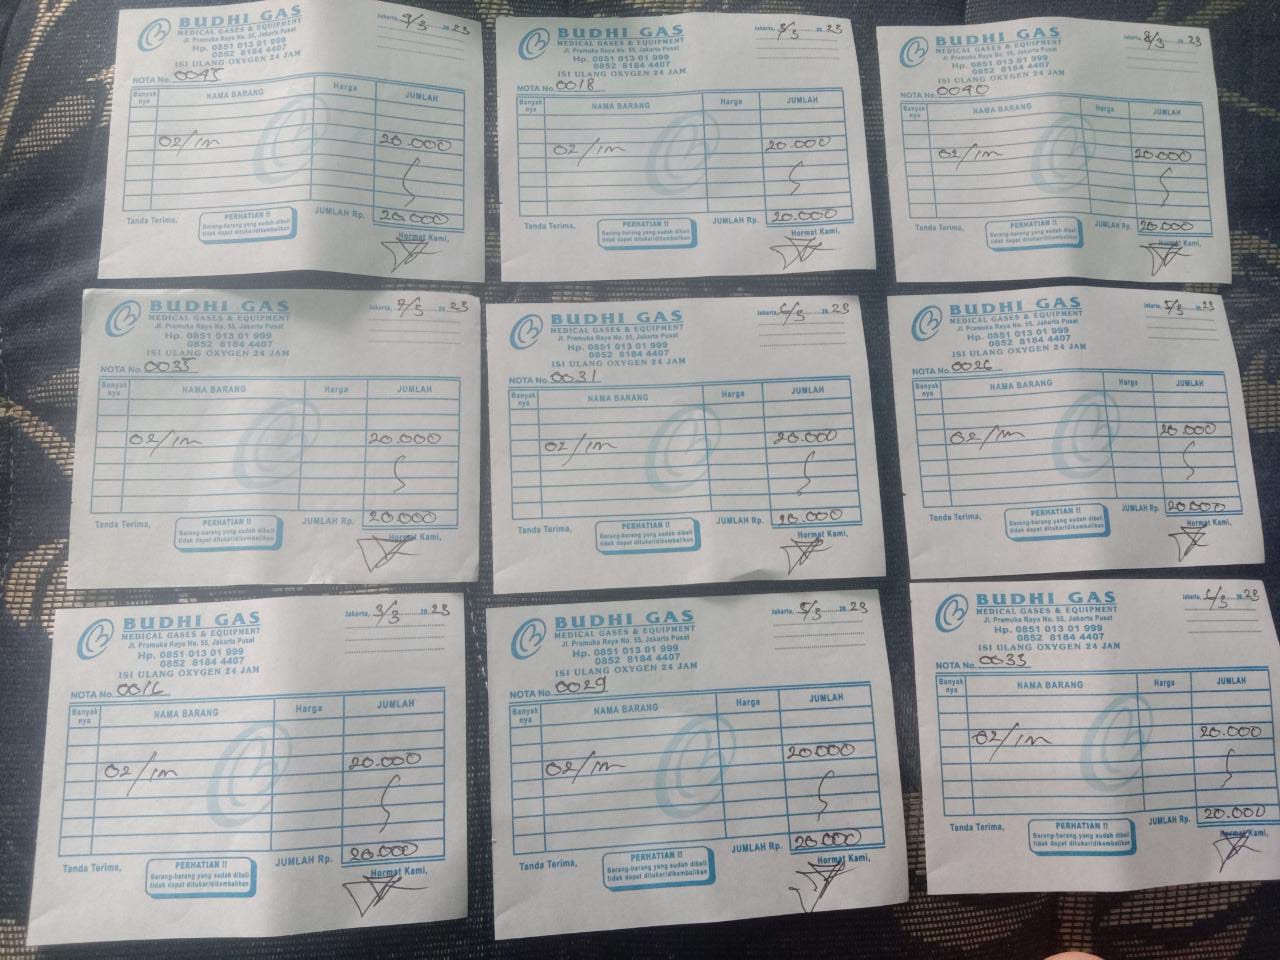 BUDHI GAS
MEDICAL GASES & EQUIPMENT
Jl. Pramuka Raya No. 55, Jakarta Pusat
Hp. 0851 013 01 999
0852 8184 4407
ISI ULANG OXYGEN 24 JAM
Jakarta, 9/3 2023
NOTA No. 0045
Banyak nya NAMA BARANG Harga JUMLAH
O2/1m 20.000
JUMLAH Rp. 20.000
Tanda Terima,
PERHATIAN !!
Barang-barang yang sudah dibeli
tidak dapat ditukar/dikembalikan
Hormat Kami,
BUDHI GAS
MEDICAL GASES & EQUIPMENT
Jl. Pramuka Raya No. 55, Jakarta Pusat
Hp. 0851 013 01 999
0852 8184 4407
ISI ULANG OXYGEN 24 JAM
Jakarta, 3/3 2023
NOTA No. 0018
Banyak nya NAMA BARANG Harga JUMLAH
O2/1m 20.000
JUMLAH Rp. 20.000
Tanda Terima,
PERHATIAN !!
Barang-barang yang sudah dibeli
tidak dapat ditukar/dikembalikan
Hormat Kami,
BUDHI GAS
MEDICAL GASES & EQUIPMENT
Jl. Pramuka Raya No. 55, Jakarta Pusat
Hp. 0851 013 01 999
0852 8184 4407
ISI ULANG OXYGEN 24 JAM
Jakarta, 8/3 2023
NOTA No. 0040
Banyak nya NAMA BARANG Harga JUMLAH
O2/1m 20.000
JUMLAH Rp. 20.000
Tanda Terima,
PERHATIAN !!
Barang-barang yang sudah dibeli
tidak dapat ditukar/dikembalikan
Hormat Kami,
BUDHI GAS
MEDICAL GASES & EQUIPMENT
Jl. Pramuka Raya No. 55, Jakarta Pusat
Hp. 0851 013 01 999
0852 8184 4407
ISI ULANG OXYGEN 24 JAM
Jakarta, 7/3 2023
NOTA No. 0035
Banyak nya NAMA BARANG Harga JUMLAH
O2/1m 20.000
JUMLAH Rp. 20.000
Tanda Terima,
PERHATIAN !!
Barang-barang yang sudah dibeli
tidak dapat ditukar/dikembalikan
Hormat Kami,
BUDHI GAS
MEDICAL GASES & EQUIPMENT
Jl. Pramuka Raya No. 55, Jakarta Pusat
Hp. 0851 013 01 999
0852 8184 4407
ISI ULANG OXYGEN 24 JAM
Jakarta, 6/3 2023
NOTA No. 0031
Banyak nya NAMA BARANG Harga JUMLAH
O2/1m 20.000
JUMLAH Rp. 20.000
Tanda Terima,
PERHATIAN !!
Barang-barang yang sudah dibeli
tidak dapat ditukar/dikembalikan
Hormat Kami,
BUDHI GAS
MEDICAL GASES & EQUIPMENT
Jl. Pramuka Raya No. 55, Jakarta Pusat
Hp. 0851 013 01 999
0852 8184 4407
ISI ULANG OXYGEN 24 JAM
Jakarta, 5/3 2023
NOTA No. 0026
Banyak nya NAMA BARANG Harga JUMLAH
O2/1m 20.000
JUMLAH Rp. 20.000
Tanda Terima,
PERHATIAN !!
Barang-barang yang sudah dibeli
tidak dapat ditukar/dikembalikan
Hormat Kami,
BUDHI GAS
MEDICAL GASES & EQUIPMENT
Jl. Pramuka Raya No. 55, Jakarta Pusat
Hp. 0851 013 01 999
0852 8184 4407
ISI ULANG OXYGEN 24 JAM
Jakarta, 3/3 2023
NOTA No. 0016
Banyak nya NAMA BARANG Harga JUMLAH
O2/1m 20.000
JUMLAH Rp. 20.000
Tanda Terima,
PERHATIAN !!
Barang-barang yang sudah dibeli
tidak dapat ditukar/dikembalikan
Hormat Kami,
BUDHI GAS
MEDICAL GASES & EQUIPMENT
Jl. Pramuka Raya No. 55, Jakarta Pusat
Hp. 0851 013 01 999
0852 8184 4407
ISI ULANG OXYGEN 24 JAM
Jakarta, 5/3 2023
NOTA No. 0029
Banyak nya NAMA BARANG Harga JUMLAH
O2/1m 20.000
JUMLAH Rp. 20.000
Tanda Terima,
PERHATIAN !!
Barang-barang yang sudah dibeli
tidak dapat ditukar/dikembalikan
Hormat Kami,
BUDHI GAS
MEDICAL GASES & EQUIPMENT
Jl. Pramuka Raya No. 55, Jakarta Pusat
Hp. 0851 013 01 999
0852 8184 4407
ISI ULANG OXYGEN 24 JAM
Jakarta, 6/3 2023
NOTA No. 0033
Banyak nya NAMA BARANG Harga JUMLAH
O2/1m 20.000
JUMLAH Rp. 20.000
Tanda Terima,
PERHATIAN !!
Barang-barang yang sudah dibeli
tidak dapat ditukar/dikembalikan
Hormat Kami,